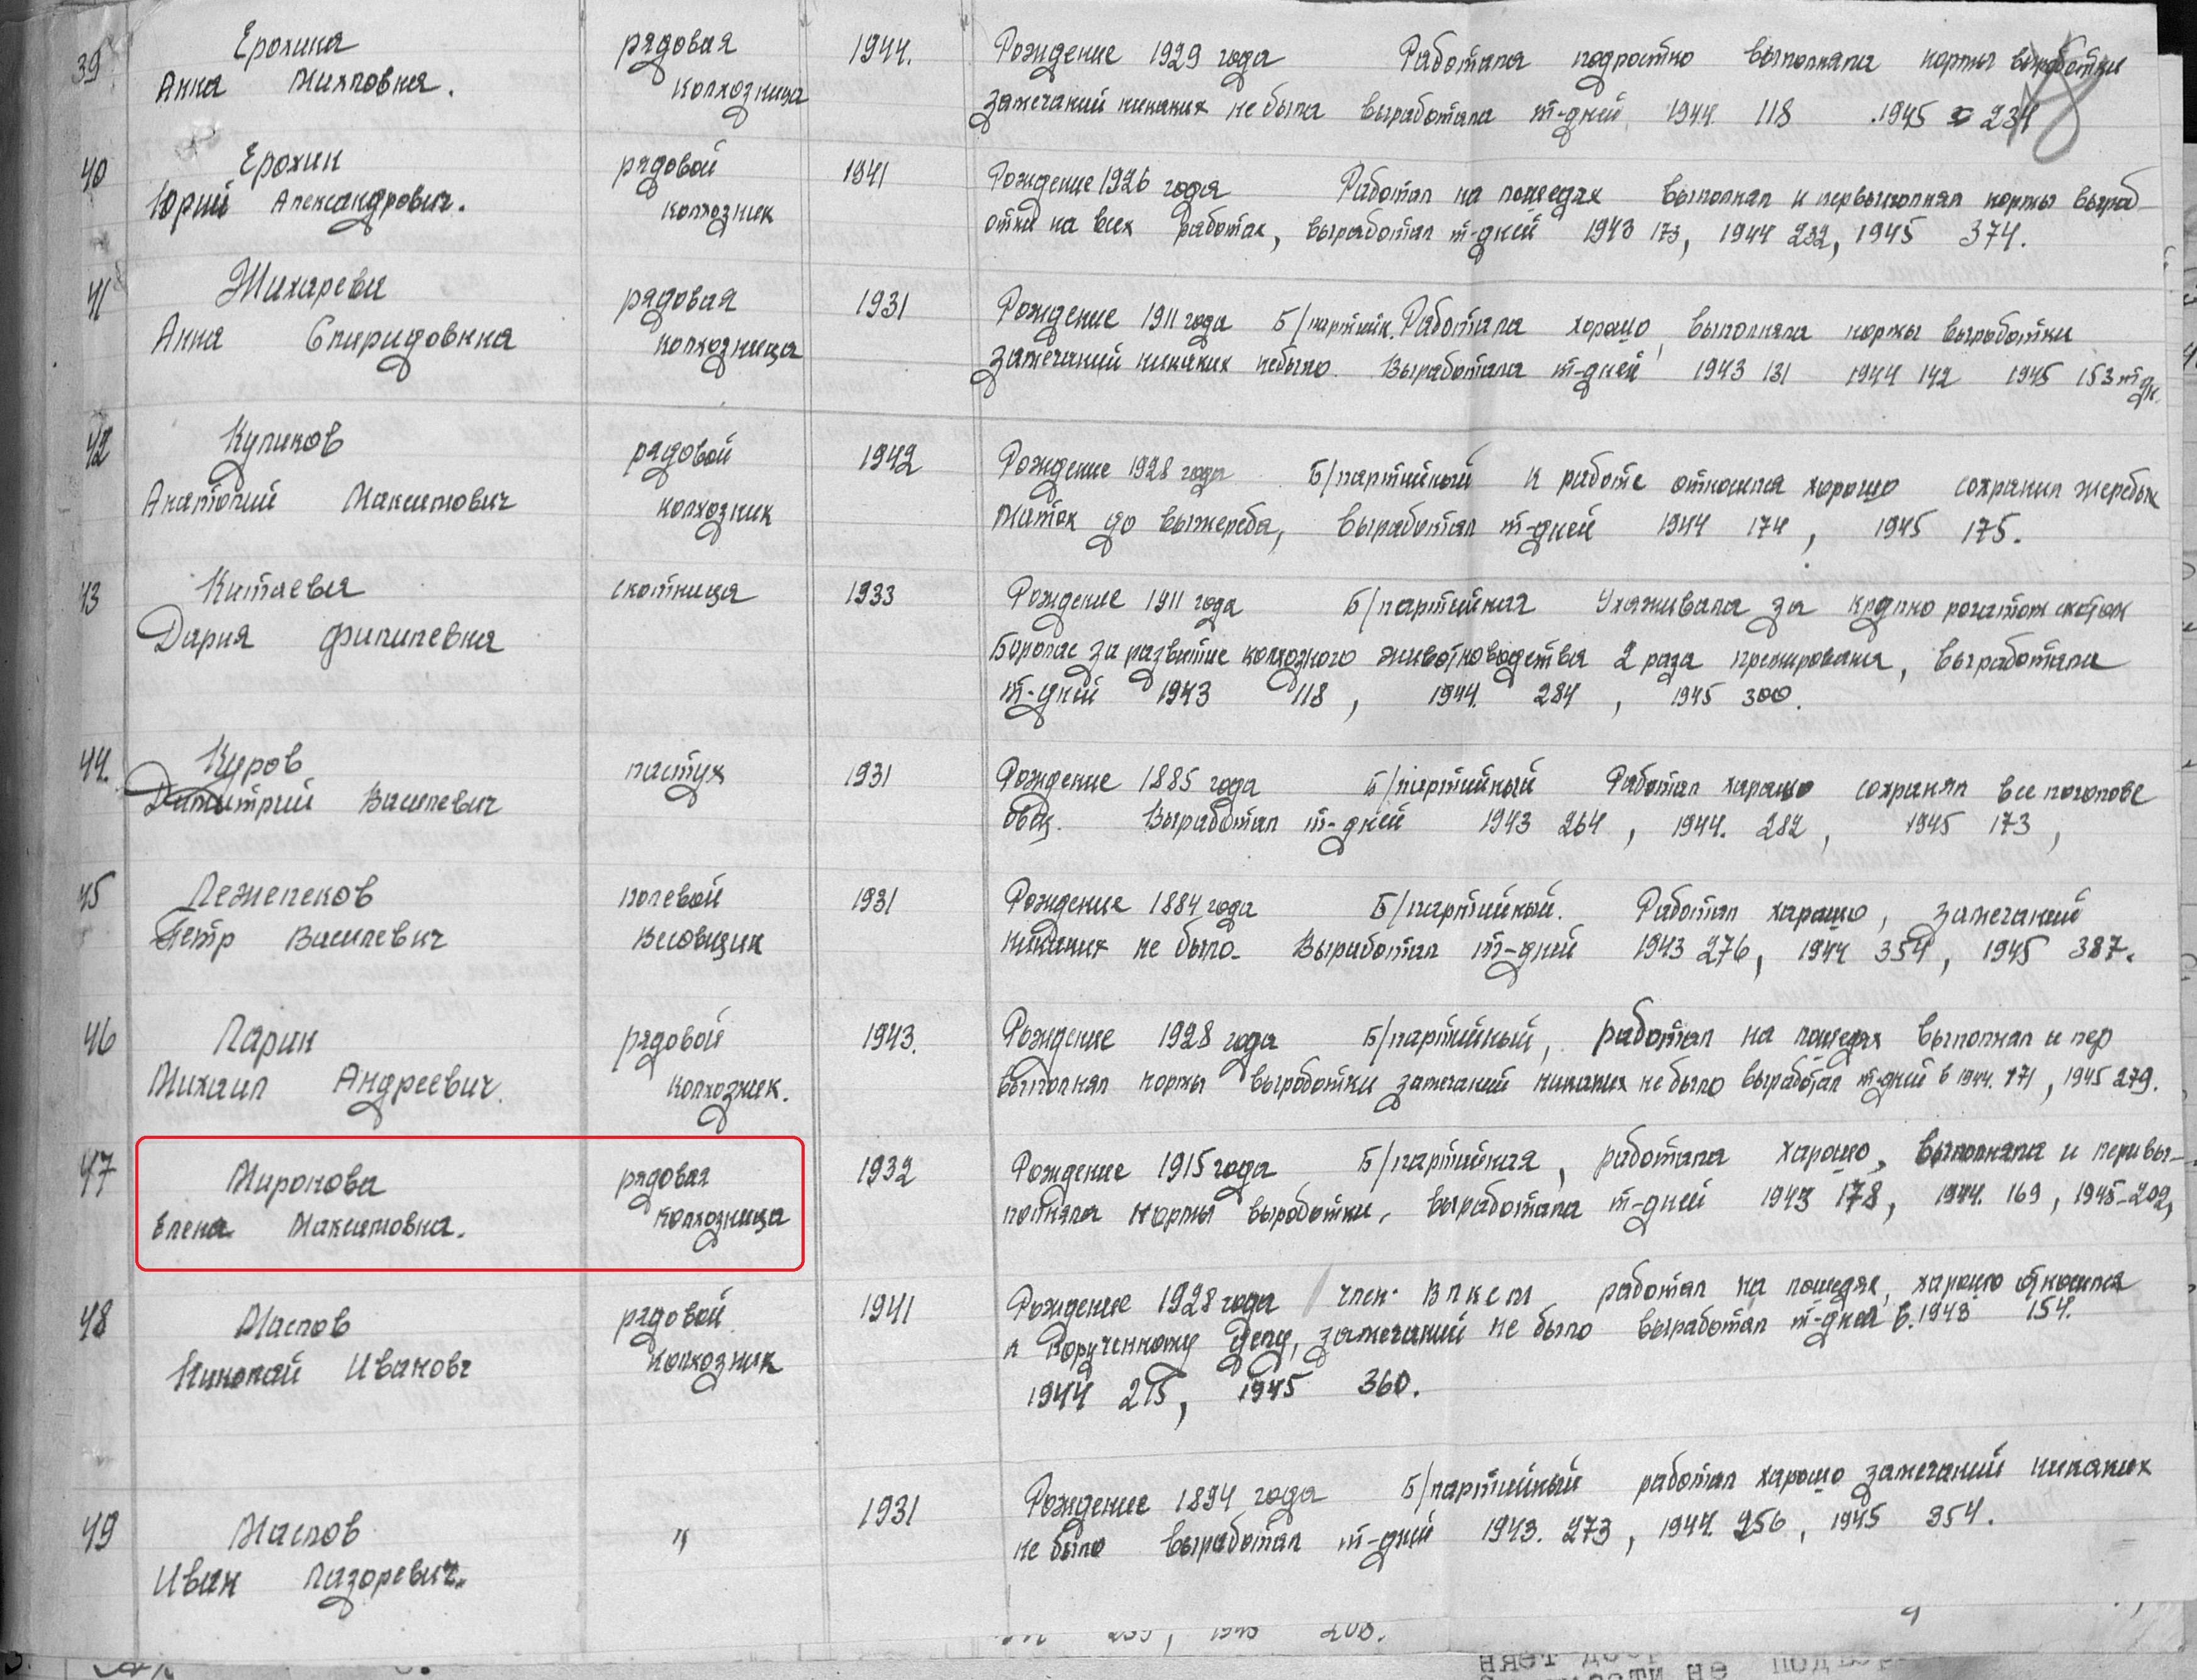 39 Ерохина рядовая 1944. Рождение 1929 года Работала выполняла нормы выработки
Анна колхозница замечаний никаких не была выработала т-дней 1944 118 .1945 234
40 Ерохин рядовой 1941 Рождение 1926 года Работал на лошедях выполнял и первыполнял нормы выраб-
Юрий Александрович. колхозник отки на всех работах, выработал т-дней 1943 173, 1944 232, 1945 374.
41 Жихарева рядовая 1931 Рождение 1911 года Б/партийн. Работала хорошо, выполняла нормы выработки
Анна Спиридовна колхозница замечаний никаких небыло. Выработала т-дней 1943 131 1944 142 1945 153 т дн.
42 Куликов рядовой 1942 Рождение 1928 года Б/партийный К работе относился хорошо сохранил жеребых
Анатолий Максимович колхозник маток до выжереба, выработал т-дней 1944 174, 1945 175.
43 Китаева скотница 1933 Рождение 1911 года Б/партийная Ухаживала за крупно рогатом скотом
Дария Филипевна Боролас за развитие колхозного животноводства 2 раза премирована, выработала
т-дней 1943 118, 1944. 284, 1945 300.
44. Куров пастух 1931 Рождение 1885 года Б/партийный Работал харашо сохранял все поголове
Димитрий Василевич овец. Выработал т-дней 1943 264, 1944. 282, 1945 173,
45 Лежепеков полевой 1931 Рождение 1884 года Б/партийный. Работал харашо, замечаний
Петр Василевич весовщик никаких не было. Выработал т-дней 1943 276, 1944 354, 1945 387.
46 Ларин рядовой 1943. Рождение 1928 года Б/партийный, работал на лошедях выполнял и пер
Михаил Андреевич. колхозник. выполнял нормы выроботки замечаний никаких не было выработал т-дней в 1944. 171, 1945 279.
47 Миронова рядовая 1932 Рождение 1915 года Б/партийная, работала харашо, выполняла и перивы-
Елена Максимовна. колхозница полняла нормы выроботки, выработала т-дней 1943 178, 1944. 169, 1945-202,
48 Маслов рядовой 1941 Рождение 1928 года член ВЛКСМ работал на лошедях, харашо относился
Николай Ивановч колхозник к порученному делу, замечаний не было выработал т-дней в. 1943 154.
1944 215, 1945 360.
49 Маслов " 1931 Рождение 1894 года Б/партийный работал харашо замечаний никаких
Иван Лазоревич. не было выработал т-дней 1943. 273, 1944. 256, 1945 354.